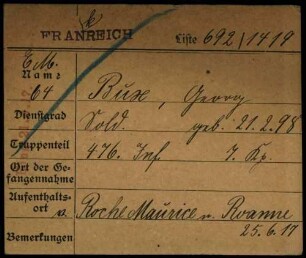 k
FRANREICH Liste 692/1419
E.M.
Name Buse, Georg
64
Dienstgrad Sold. geb. 21.2.98
Truppenteil 476. Inf. 7. Kp.
Ort der Ge-
fangennahme
Aufenthalts-
ort Roche Maurice n. Roanne
25.6.17
Bemerkungen